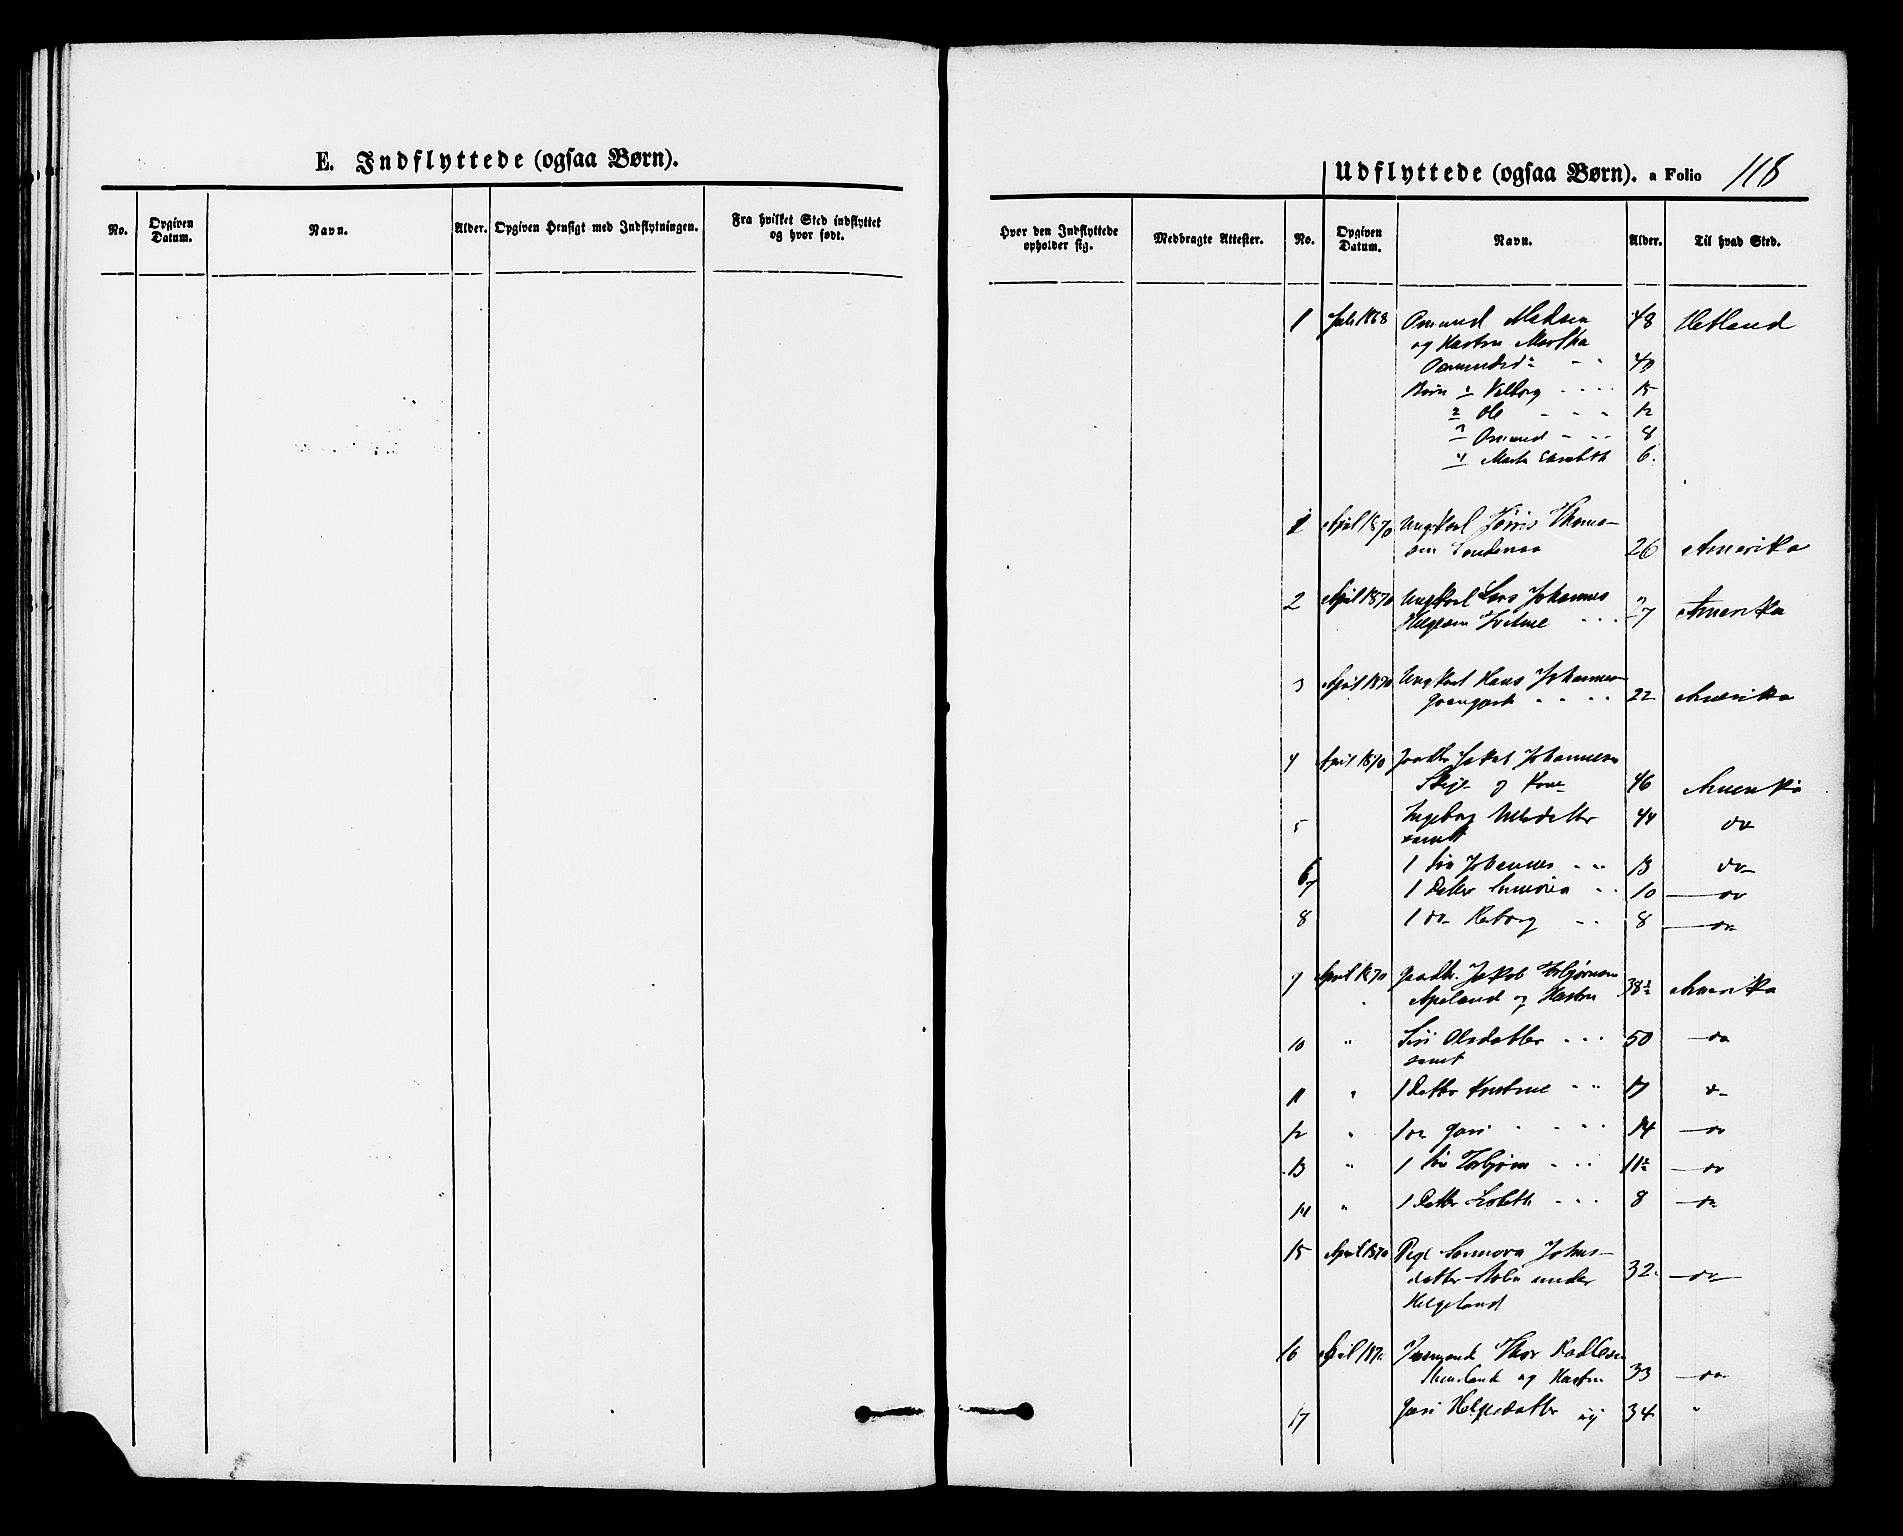 E. Indflyttede (ogsaa Børn).
No.
Opgiven Datum.
Navn.
Alder.
Opgiven Hensigt med Indflytningen.
Fra hvilket Sted indflyttet og hvor født.
Udflyttede (ogsaa Børn). a Folio 118
Hvor den Indflyttede opholder sig.
Medbragte Attester.
No.
Opgiven Datum.
Navn.
Alder.
Til hvad Sted.
1 Juli 1868 Osmund Madsen 48 Hetland
og Hustru Martha
Osmundsd 40
Børn 1 Valborg 15
2 Ole 12
3 Osmund 8
4 Marta Elisabeth 6.
1 April 1870 Ungkarl Thoma-
sen 26 Amerika
2 April 1870 Ungkarl Lars Johannes
Helgesen 27 Amerika
3 April 1870 Ungkarl Hans Johannesen
22 Amerika
4 April 1870 Gaardbr Jakob Johannesen
og Kone 46 Amerika
5 Ingeborg Nilsdatter 44 do
samt
6 1 Søn Johannes 13 do
7 1 Datter 10 do
8 1 do 8 do
9 April 1870 Gaardbr. Jakob Torbjørnsen
Apeland og Hustru 38½ Amerika
10 " Siri Olsdatter 50 do
samt
11 " 1 Datter 17 do
12 " 1 do Guri 14 do
13 " 1 Søn Torbjørn 11½ do
14 " 1 Datter Lisbeth 8 do
15 April 1870 Pige Johns-
datter under 32. do
Helgeland
16 April 1870 Thor
og Hustru 33 do
17 Guri Helgesdatter 34 "